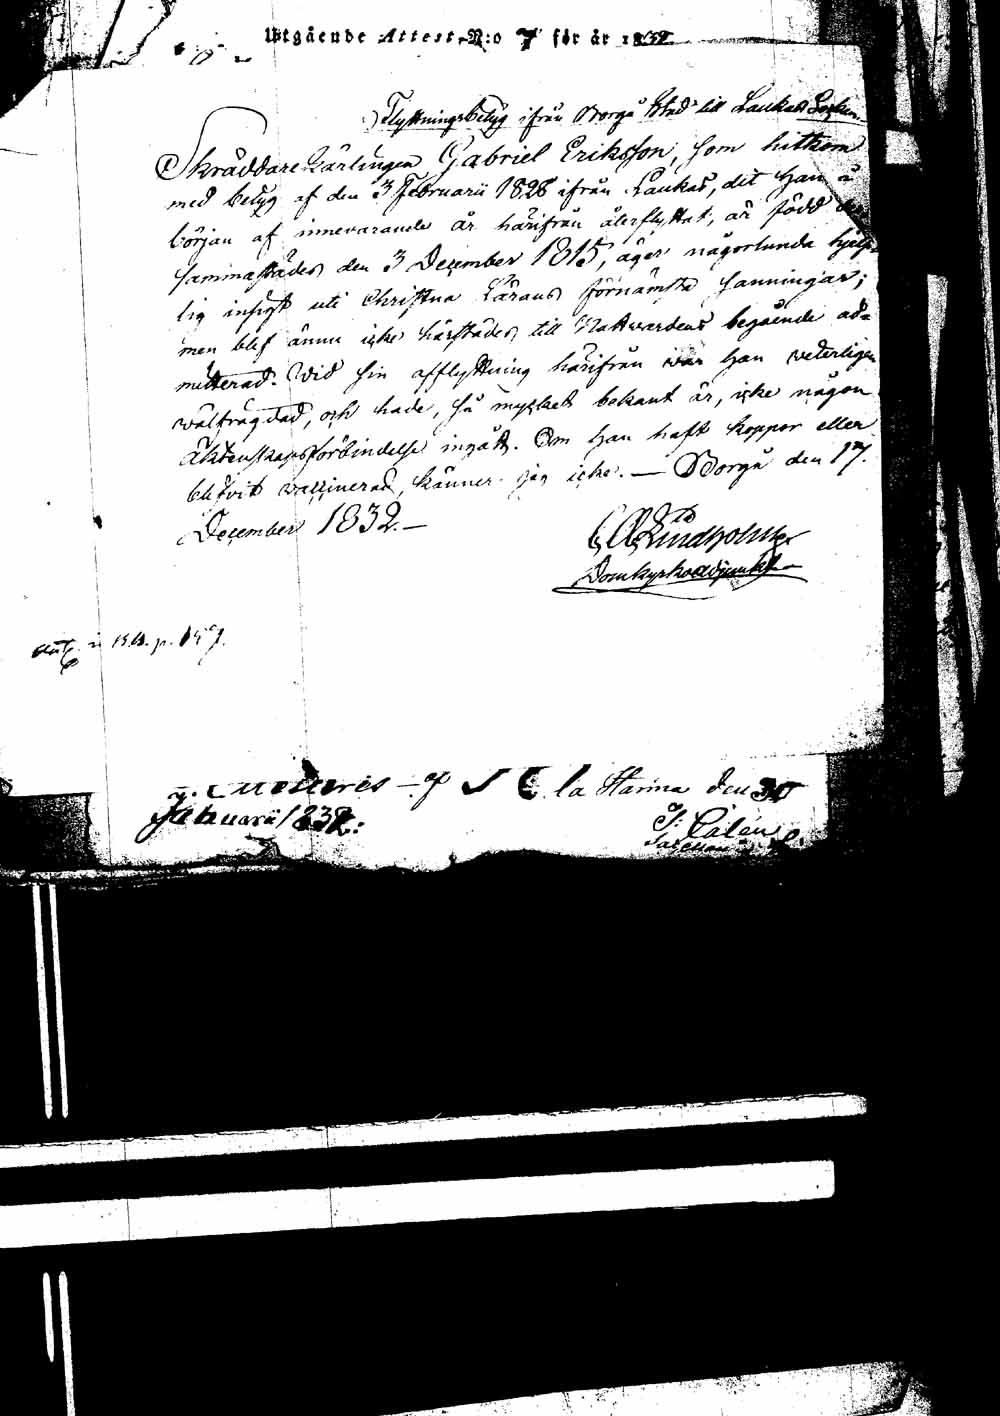 Utgående Attest N:o 7 för år 1832
Flyttningsbetyg ifrån Borgå Stad till Laukas Socken.
Skräddare Lärlingen Gabriel Eriksson, som hitkom
med betyg af den 3 Februarii 1828 ifrån Laukas, dit han i
början af innevarande år härifrån återflyttat, är född der
sammastädes den 3 December 1815, äger någorlunda hjelp-
lig insigt uti Christna Lärans förnämsta sanningar;
men blef ännu icke härstädes till Nattvardens begående ad-
mitterad. Wid sin afflyttning härifrån war han veterligen
wälfrägdad, och hade, så mycket bekant är, icke någon
äktenskapsförbindelse ingått. Om han haft koppor eller
blifvit vaccinerad, känner jag icke. — Borgå den 17.
December 1832. —
Lindholm
Domkyrkoadjunkt
p. 157.
la Harina den 30
Januarii 1832: